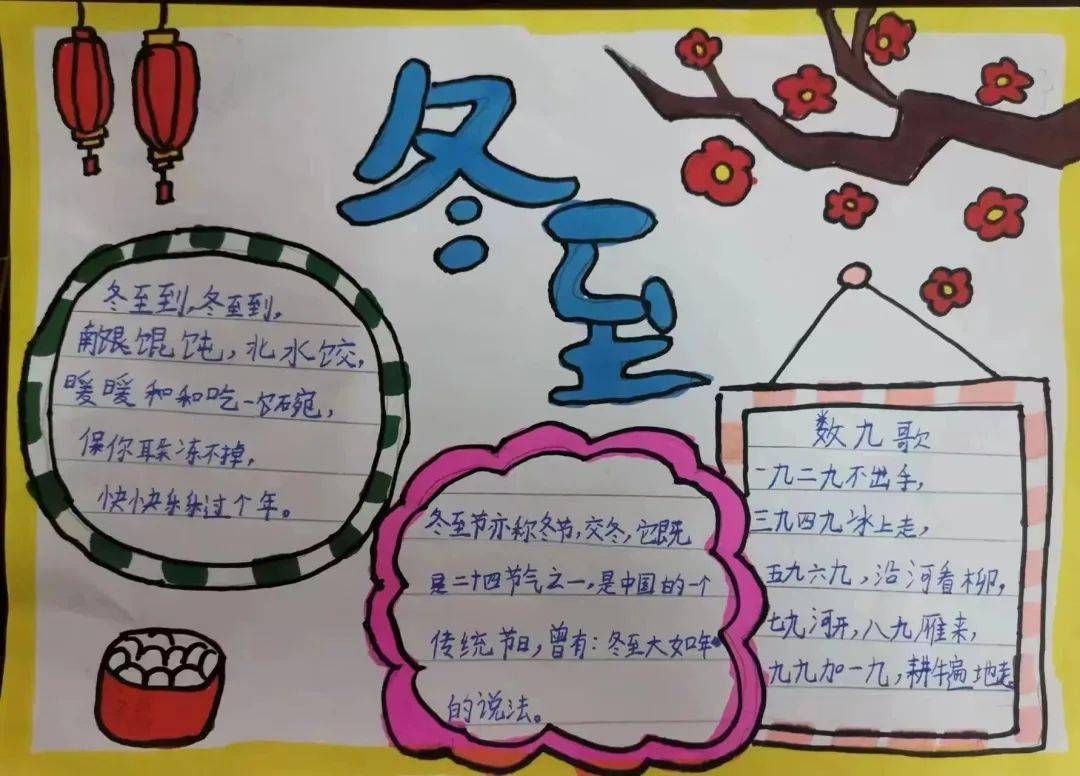 冬至
冬至到,冬至到,
南跟馄饨,北水饺,
暖暖和和吃一碗,
保你耳朵冻不掉,
快快乐乐过个年。
冬至节亦称冬节,交冬,它既
是二十四节气之一,是中国的一个
传统节日,曾有:冬至大如年
的说法。
数九歌
一九二九不出手,
三九四九冰上走,
五九六九,沿河看柳,
七九河开,八九雁来,
九九加一九,耕牛遍地走